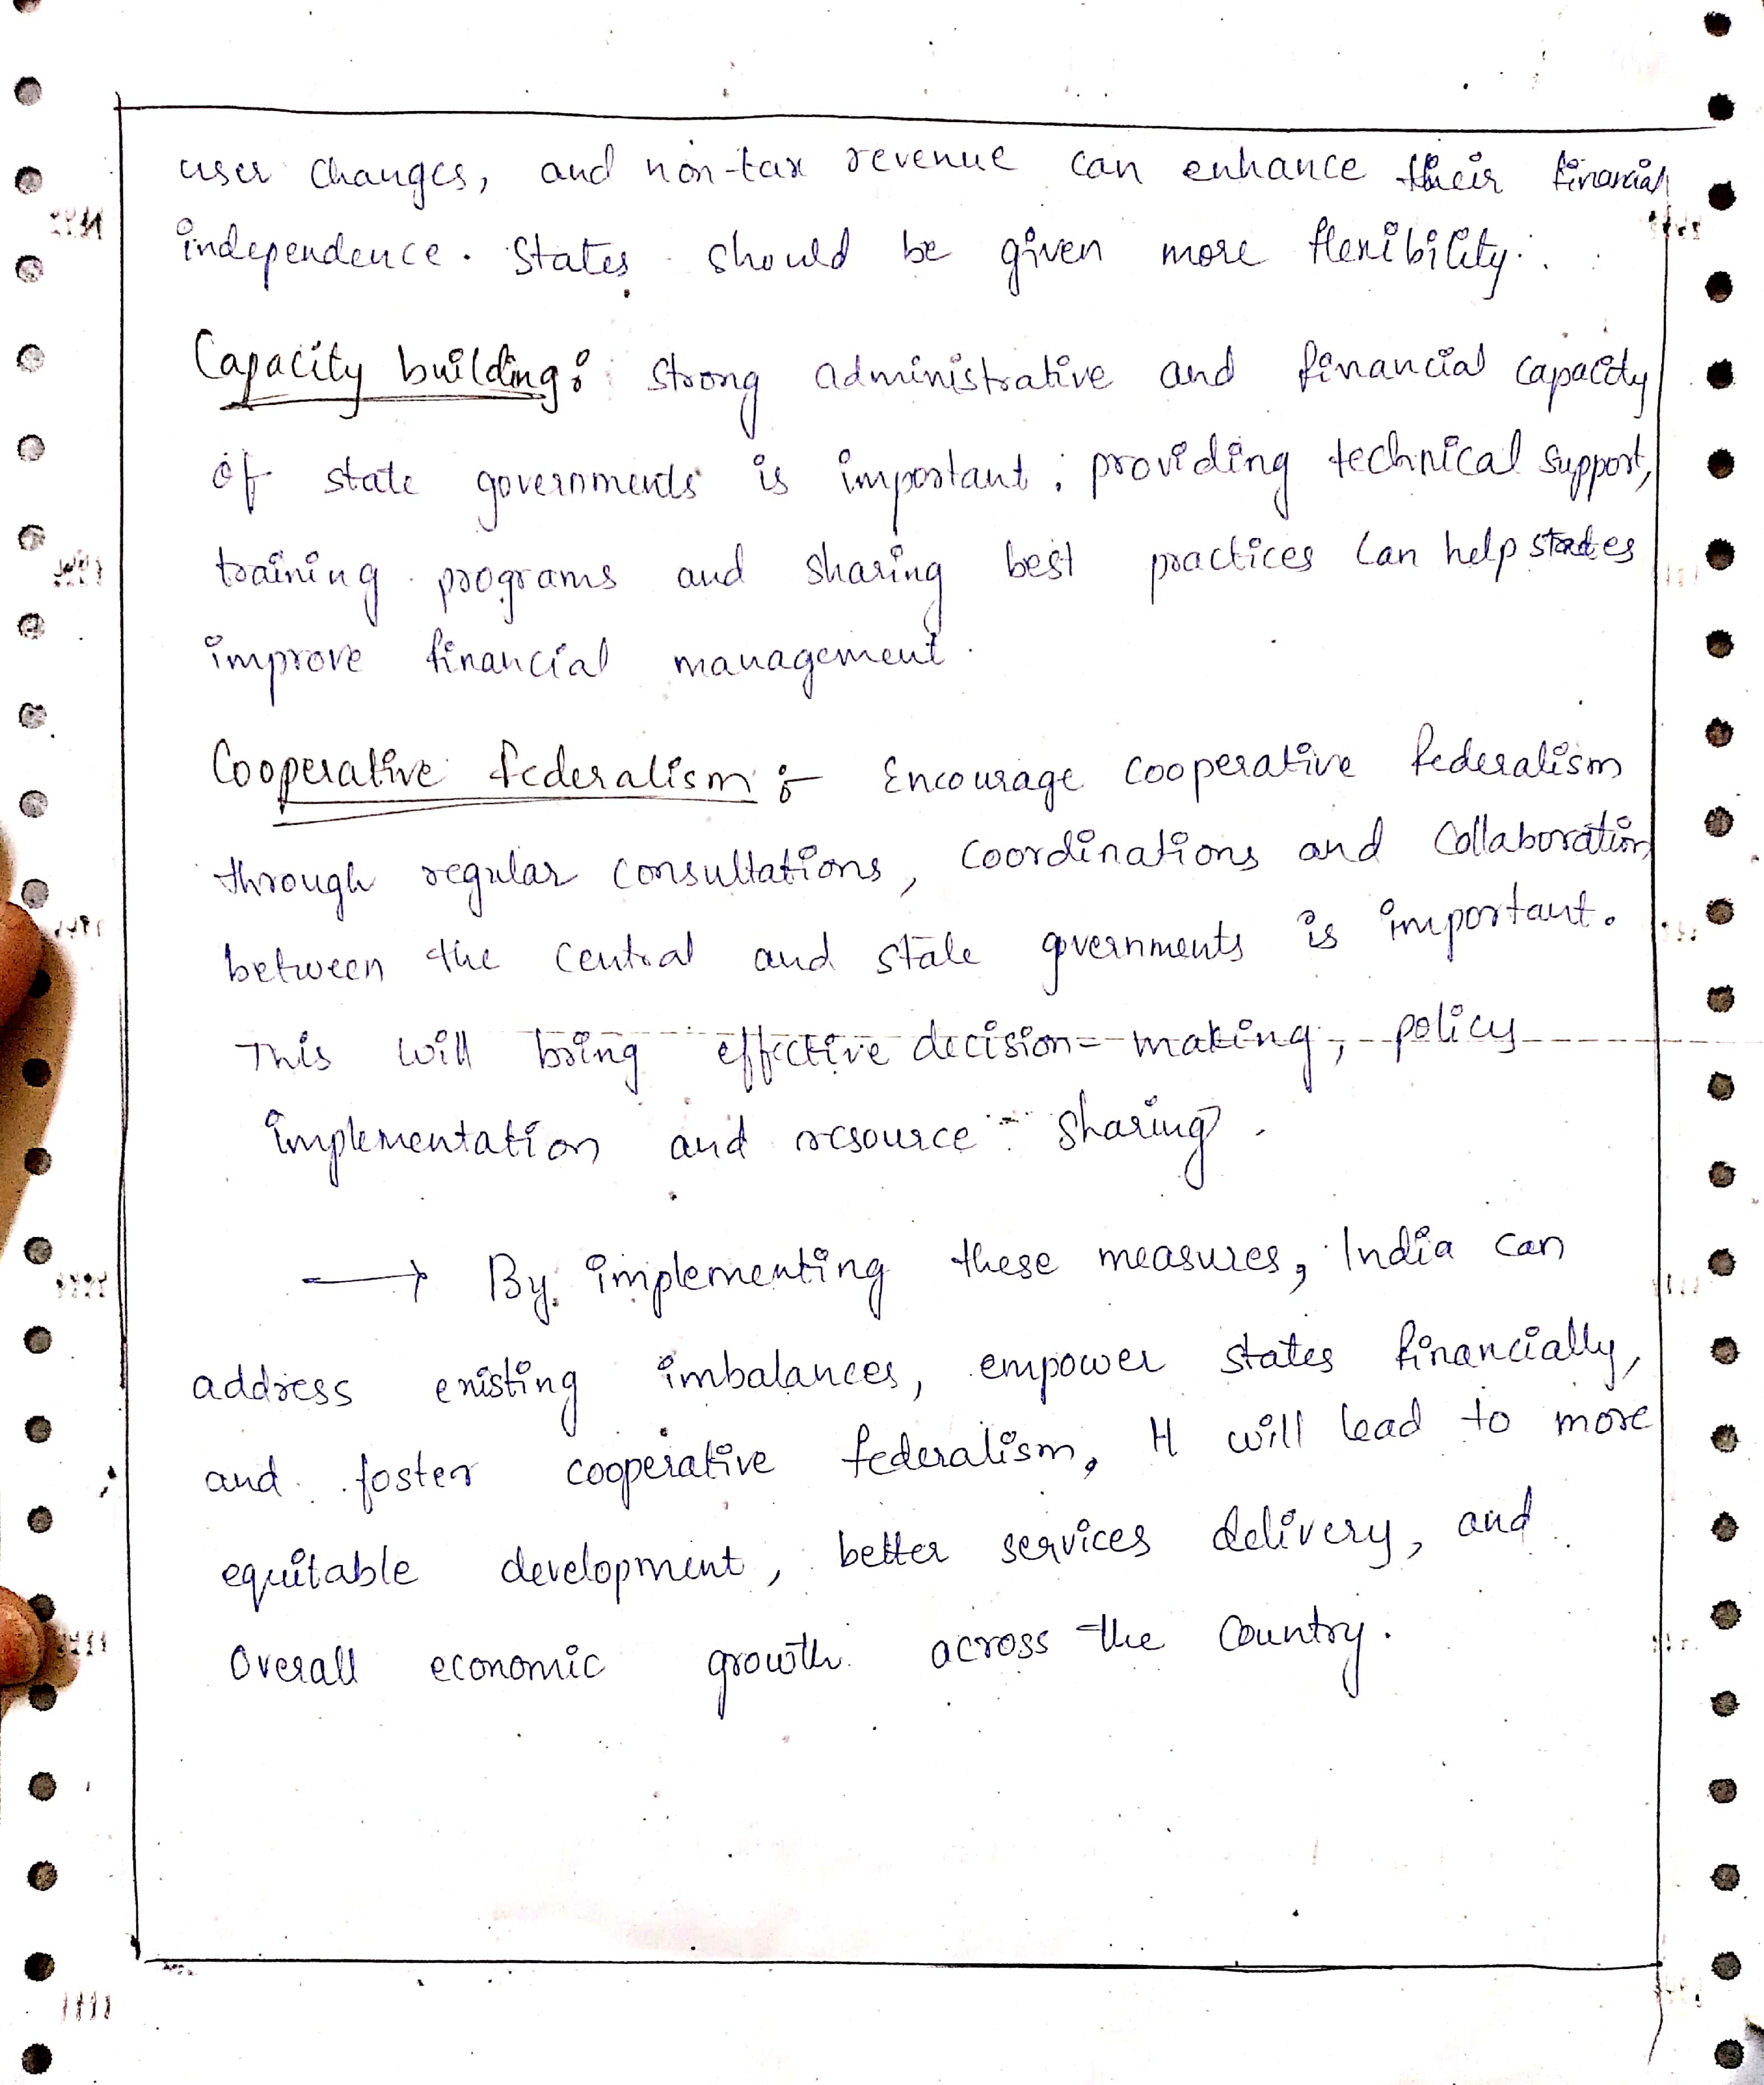 user changes, and non-tax revenue can enhance their financial
independence. States should be given more flexibility.
Capacity building: Strong administrative and financial capacity
of state governments is important, providing technical support,
training programs and sharing best practices can help states
improve financial management.
Cooperative federalism :- Encourage cooperative federalism
through regular consultations, coordinations and collaboration
between the central and state governments is important.
This will bring effective decision-making, policy
implementation and resource-sharing.
→ By implementing these measures, India can
address existing imbalances, empower states financially,
and foster cooperative federalism, It will lead to more
equitable development, better services delivery, and
overall economic growth across the country.